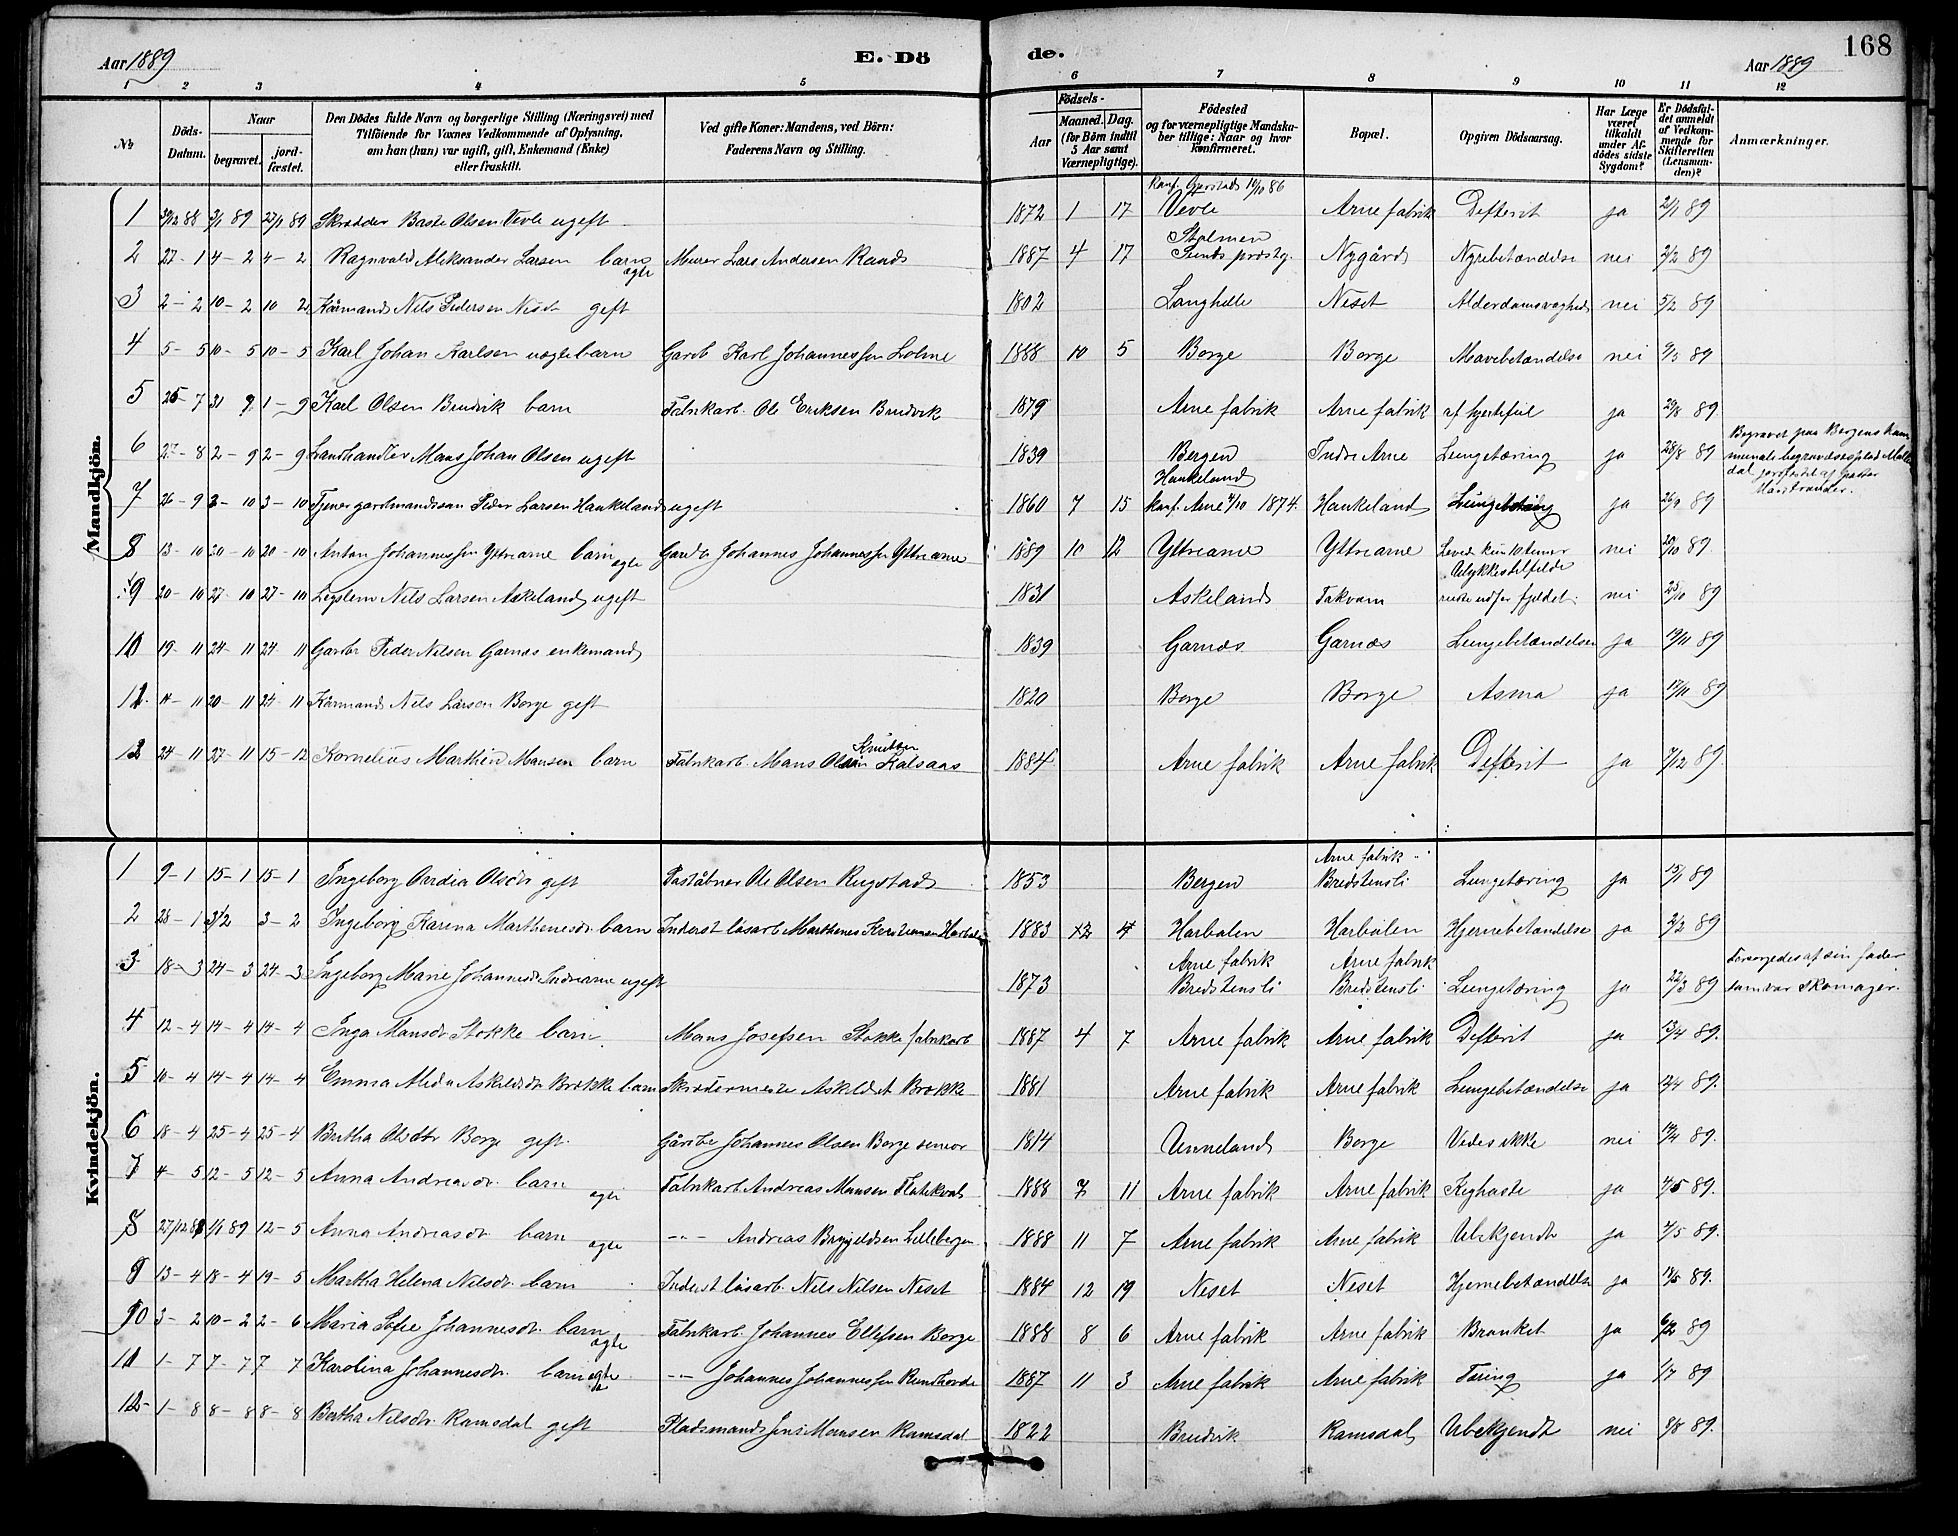 Aar 1889 E. Dö de. Aar 1889 168
1 2 3 4 5 6 7 8 9 10 11 12
No
Döds-Datum.
Naar
begravet.
jord-fæstet.
Den Dödes fulde Navn og borgerlige Stilling (Næringsvei) med
Tilföiende for Voxnes Vedkommende af Oplysning,
om han (hun) var ugift, gift, Enkemand (Enke)
eller fraskilt.
Ved gifte Koner: Mandens, ved Börn:
Faderens Navn og Stilling.
Födsels-
Aar
Maaned. Dag.
(for Börn indtil
5 Aar samt
Værnepligtige).
Födested
og for værnepligtige Mandska-
ber tillige: Naar og hvor
Konfirmeret.
Bopæl.
Opgiven Dödsaarsag.
Har Læge
været
tilkaldt
under Af-
dödes sidste
Sygdom?
Er Dödsfal-
det anmeldt
af Vedkom-
mende for
Skifteretten
(Lensman-
den)?
Anmærkninger.
Mandkjön.
1 30/12 88 3/1 89 27/1 89 Skrædder Baste Olsen Vevle ugift 1872 1 17 Vevle Arne fabrik Defterit ja 2/1 89
2 27-1 4-2 4-2 Ragnvald Aleksander Larsen barn ægte Murer Lars Andersen Rand 1887 4 17 Stolmen Sunds præstg. Nygård Nyrebetændelse nei 2/2 89
3 2-2 10-2 10 2 Kårmand Nils Pedersen Neset gift 1802 Langhelle Neset Alderdomsvaghed nei 5/2 89
4 5-5 10-5 10-5 Karl Johan Karlsen uægte barn Garbr Karl Johannessen Lolme 1888 10 5 Borge Borge Mavebetændelse nei 9/5 89
5 25-7 31 7 1-9 Karl Olsen Brudvik barn Fabrikarb. Ole Eriksen Brudvik 1879 Arne fabrik Arne fabrik af hjertefeil ja 29/8 89
6 27-8 2-9 2-9 Landhandler Mons Johan Olsen ugift 1839 Bergen Indre Arne Lungetæring ja 28/8 89 Begravet paa Bergens kom
munale begravelsesplads Møllen
dal jordfæstet af
7 26-9 3-10 3-10 Tjener gardmandssøn Peder Larsen Haukeland ugift 1860 7 15 Haukeland konf. Arne 4/10 1874. Haukeland ja 26/9 89
8 13-10 20-10 20-10 Anton Johannessen Yttrearne barn ægte Gardbr Johannes Johannessen Yttrearne 1889 10 12 Yttrearne Yttrearne Leved kun 10 timer nei 20/10 89.
9 20-10 27-10 27-10 Legslem Nils Larsen Askeland ugift 1831 Askeland Takvam Ulykkestilfelde nei 25/10 89
10 19-11 24-11 24 11 Garbr Peder Nilsen Garnæs enkemand 1839 Garnæs Garnæs Lungebetændelse ja 19/11 89
11. 11-11 20-11 24-11 Kårmand Nils Larsen Borge gift 1820 Borge Borge Asma ja 12/11 89
12 24-11 27-11 15-12 Kornelius Marthin Monsen barn Fabrikarb. Mons Knutsen Kalsaas 1884 Arne fabrik Arne fabrik Defterit ja 7/12 89.
Kvindekjön.
1 9-1 15-1 15-1 Ingeborg Olsdtr gift Poståbner Ole Olsen Rugstad 1853 Bergen Arne fabrik Bredstensli Lungetæring ja 13/1 89
2 28-1 3/2 3-2 Ingeborg Karina Marthinesdr. barn Inderst løsarb Marthines Kristensen Harbalen 1883 12 4 Harbalen Harbalen Hjernebetændelse ja 2/2 89
3 18-3 24-3 24-3 Ingeborg Marie Johannesdr. Indrearne ugift 1873 Arne fabrik Bredstensli Arne fabrik Bredstensli Lungetæring ja 22/3 89 Forsørgedes af sin fader
som var skomager.
4 12-4 14-4 14-4 Inga Monsdr Stokke barn Mons Josefsen Stokke fabrikarb 1887 4 7 Arne fabrik Arne fabrik Defterit ja 13/4 89.
5 10-4 14-4 14-4 Emma Alida Askildsdr Brokke barn Skrædermester Askild Brokke 1881 Arne fabrik Arne fabrik Lungebetændelse ja 12/4 89.
6 18-4 25-4 25-4 Bertha Olsdtr Borge gift. Gårdbr Johannes Olsen Borge senior 1814 Unneland Borge Vides ikke nei 19/4 89.
7 4-5 12-5 12-5 Anna Andreasdr. barn ægte Fabrikarb. Andreas Monsen Flatekval 1888 7 11 Arne fabrik Arne fabrik Kighoste ja 4/5 89.
8 27/12 88 1/1 89 12-5 Anna Andreasdr. barn ægte -"- Andreas Brynjeldsen Lillebergen 1888 11 7 Arne fabrik Arne fabrik Ubekjendt ja 4/5 89.
9 13-4 18-4 19-5 Martha Helena Nilsdr. barn Inderst løsarb. Nils Nilsen Neset 1884 12 19 Neset Neset Hjernebetændelse ja 18/5 89.
10 3-2 10-2 2-6 Maria Sofie Johannesdr. barn ægte Fabrikarb Johannes Ellefsen Borge 1888 8 6 Arne fabrik Arne fabrik Bronket ja 6/2 89
11 1-7 7-7 7 7 Karolina Johannesdr. barn ægte -"- Johannes Johannessen Rundhovde 1887 11 3 Arne fabrik Arne fabrik Tæring ja 1/7 89
12- 1-8 8-8 8-8 Bertha Nilsdr. Ramsdal gift Pladsmand Jens Monsen Ramsdal 1822 Brudvik Ramsdal Ubekjendt nei 8/8 89.